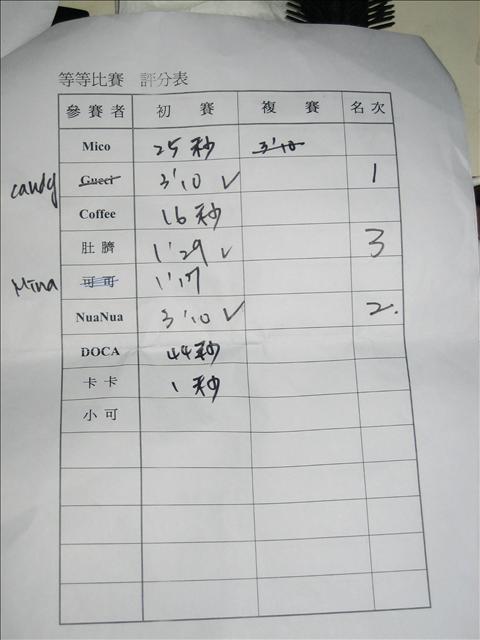 等等比賽 評分表
參賽者 初賽 複賽 名次
Mico 25秒 3'10
candy Gucci 3'10 ✓ 1
Coffee 16秒
肚臍 1'29 ✓ 3
Mina 可可 1'17
NuaNua 3'10 ✓ 2.
DOCA 44秒
卡卡 1秒
小可